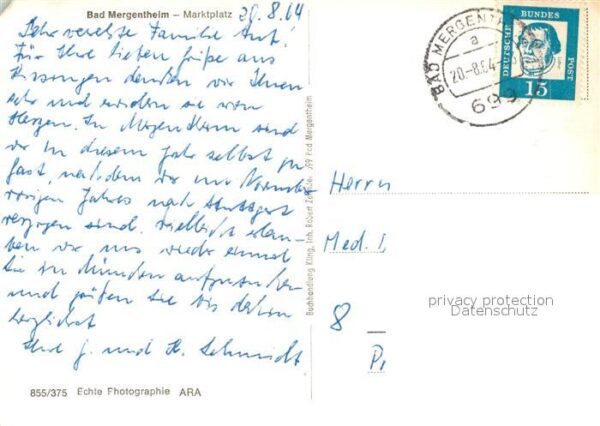 Bad Mergentheim – Marktplatz 20.8.64
Sehr verehrte Familie Aut!
Für Ihre lieben Grüße aus
Kissingen danken wir Ihnen
sehr und erwidern sie von
Herzen. In Mergentheim sind
wir in diesem Jahr selbst zu
Gast, nachdem wir im November
vorigen Jahres nach Stuttgart
verzogen sind. Vielleicht erlau-
ben wir uns wieder einmal
Sie in München aufzusuchen
und grüßen Sie bis dahin
herzlichst
Ihre J. und H. Schmidt
855/375 Echte Fhotographie ARA
Buchhandlung Kling, Inh. Robert 699 Bad Mergentheim
BAD MERGENTH
a
20-8.64
699
DEUTSCHE BUNDES POST
15
Herrn
Med. I,
8
Pr
privacy protection
Datenschutz